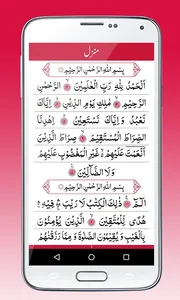 منزل
بِسْمِ اللهِ الرَّحْمٰنِ الرَّحِيْمِ
اَلْحَمْدُ لِلّٰهِ رَبِّ الْعٰلَمِيْنَ ۝ الرَّحْمٰنِ
الرَّحِيْمِ ۝ مٰلِكِ يَوْمِ الدِّيْنِ ۝ اِيَّاكَ
نَعْبُدُ وَاِيَّاكَ نَسْتَعِيْنُ ۝ اِهْدِنَا
الصِّرَاطَ الْمُسْتَقِيْمَ ۝ صِرَاطَ الَّذِيْنَ
اَنْعَمْتَ عَلَيْهِمْ ۝ غَيْرِ الْمَغْضُوْبِ عَلَيْهِمْ
وَلَا الضَّآلِّيْنَ ۝
بِسْمِ اللهِ الرَّحْمٰنِ الرَّحِيْمِ
الٓمّٓ ۝ ذٰلِكَ الْكِتٰبُ لَا رَيْبَ فِيْهِ
هُدًى لِّلْمُتَّقِيْنَ ۝ الَّذِيْنَ يُؤْمِنُوْنَ
بِالْغَيْبِ وَيُقِيْمُوْنَ الصَّلٰوةَ وَمِمَّا رَزَقْنٰهُمْ